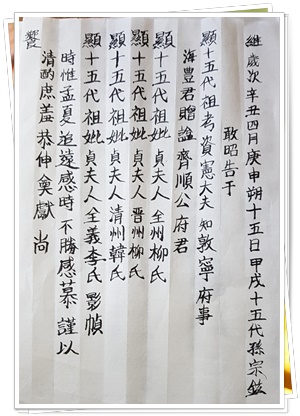 維歲次辛丑四月庚申朔十五日甲戌十五代孫宗鉉
敢昭告于
顯十五代祖考資憲大夫 知敦寧府事
海豊君贈諡齊順公府君
顯十五代祖妣貞夫人全州柳氏
顯十五代祖妣貞夫人晋州柳氏
顯十五代祖妣貞夫人清州韓氏
顯十五代祖妣貞夫人全義李氏影幀
時惟孟夏追遠感時不勝感慕謹以
清酌庶羞恭伸奠獻尚
饗